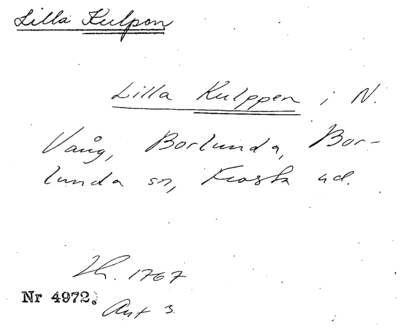 Lilla Kulpon
Lilla Kulppen i N.
Vång, Borlunda, Bor-
lunda sn, Frosta hd.
Lh. 1767
Nr 4972.
Akt 3.